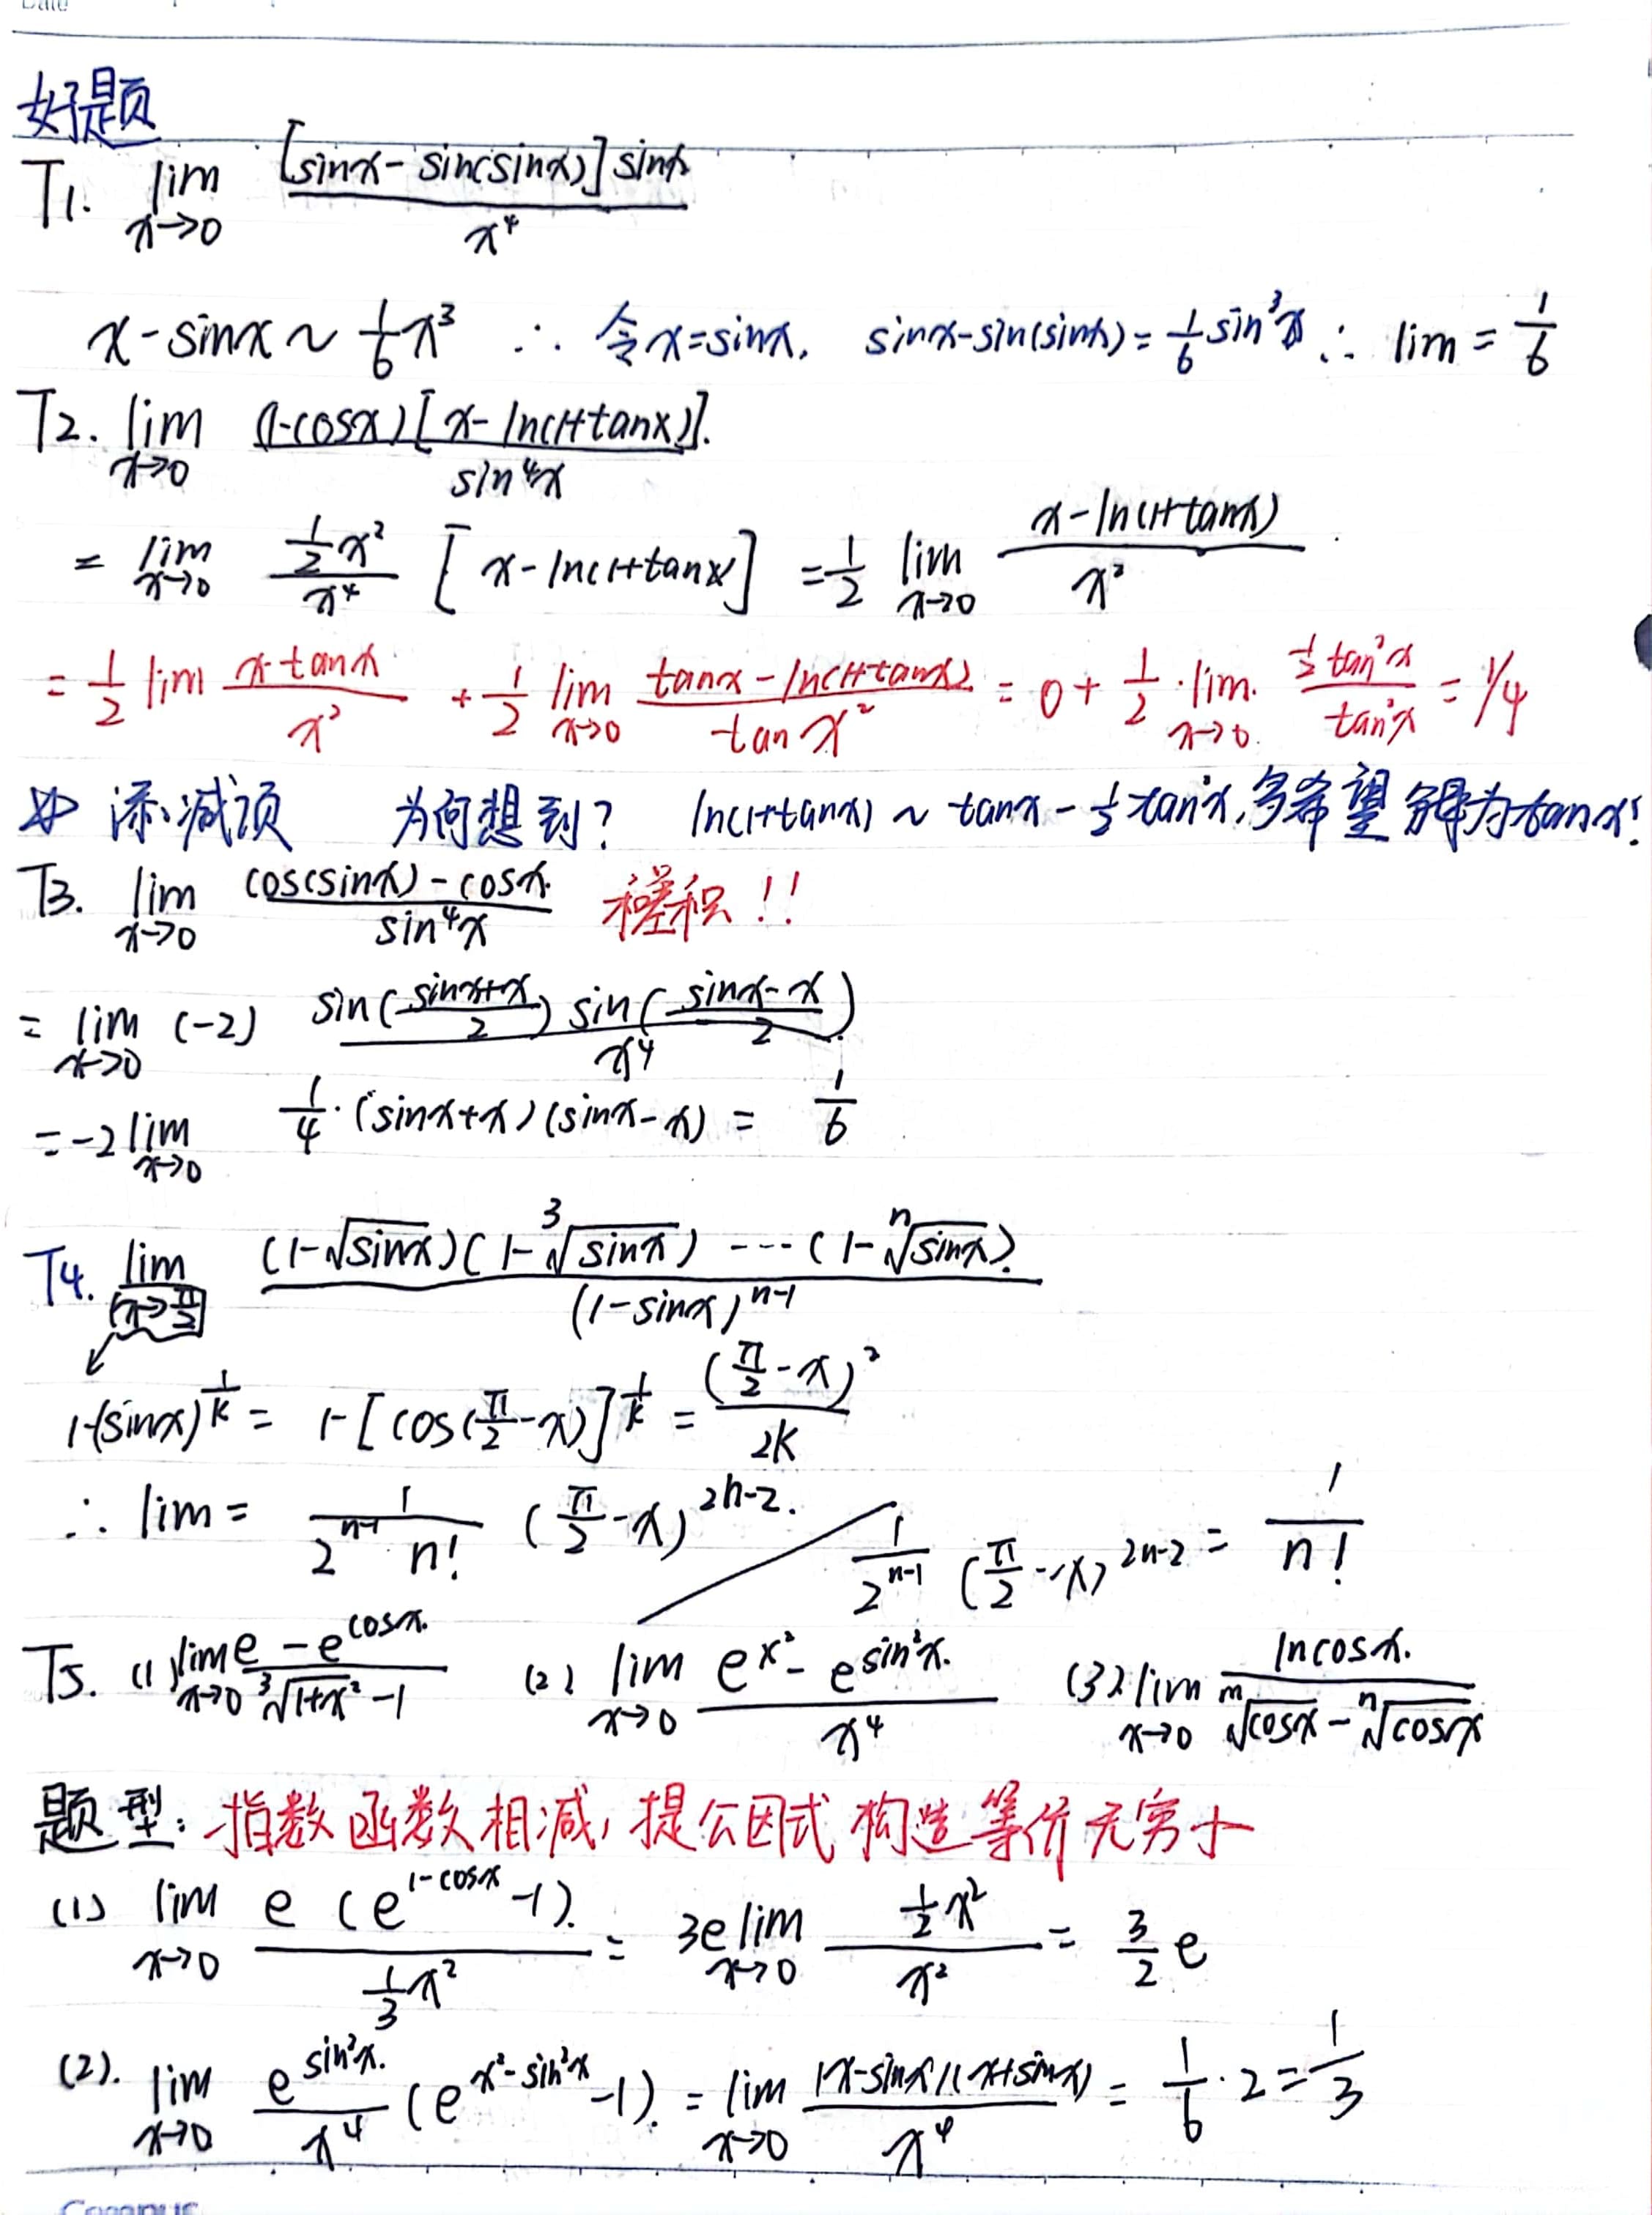 好题
T1. lim x→0 [sinx - sin(sinx)] sinx / x⁴
x - sinx ~ 1/6 x³ ∴ 令x=sinx, sinx-sin(sinx) = 1/6 sin³x ∴ lim = 1/6
T2. lim x→0 (1-cosx)[x - ln(1+tanx)] / sin⁴x
= lim x→0 (1/2 x²)/x⁴ [x - ln(1+tanx)] = 1/2 lim x→0 (x - ln(1+tanx)) / x²
= 1/2 lim (x-tanx)/x² + 1/2 lim x→0 (tanx - ln(1+tanx)) / tan x² = 0 + 1/2 · lim x→0 (1/2 tan²x)/(tan²x) = 1/4
添减项 为何想到? ln(1+tanx) ~ tanx - 1/2 tan²x, 多希望 分母为tanx!
T3. lim x→0 (cos(sinx) - cosx) / sin⁴x 和差积!!
= lim x→0 (-2) sin((sinx+x)/2) sin((sinx-x)/2) / x⁴
= -2 lim x→0 1/4 · (sinx+x)(sinx-x) = 1/6
T4. lim x→π/2 (1-√sinx)(1-³√sinx) --- (1-ⁿ√sinx) / (1-sinx)ⁿ⁻¹
1-(sinx)^(1/k) = 1-[cos(π/2-x)]^(1/k) = (π/2-x)² / 2k
∴ lim = 1/(2ⁿ⁻¹ n!) (π/2-x)²ⁿ⁻² / 1/2ⁿ⁻¹ (π/2-x)²ⁿ⁻² = 1/n!
T5. (1) lim x→0 (e - e^cosx) / (³√(1+x²) - 1) (2) lim x→0 (e^x² - e^sin²x) / x⁴ (3) lim x→0 lncosx / (ᵐ√cosx - ⁿ√cosx)
题型: 指数函数相减, 提公因式 构造等价无穷小
(1) lim x→0 e(e^(1-cosx) - 1) / (1/3 x²) = 3e lim x→0 (1/2 x²)/x² = 3/2 e
(2). lim x→0 e^sin²x / x⁴ (e^(x²-sin²x) - 1) = lim x→0 (x-sinx)(x+sinx) / x⁴ = 1/6 · 2 = 1/3